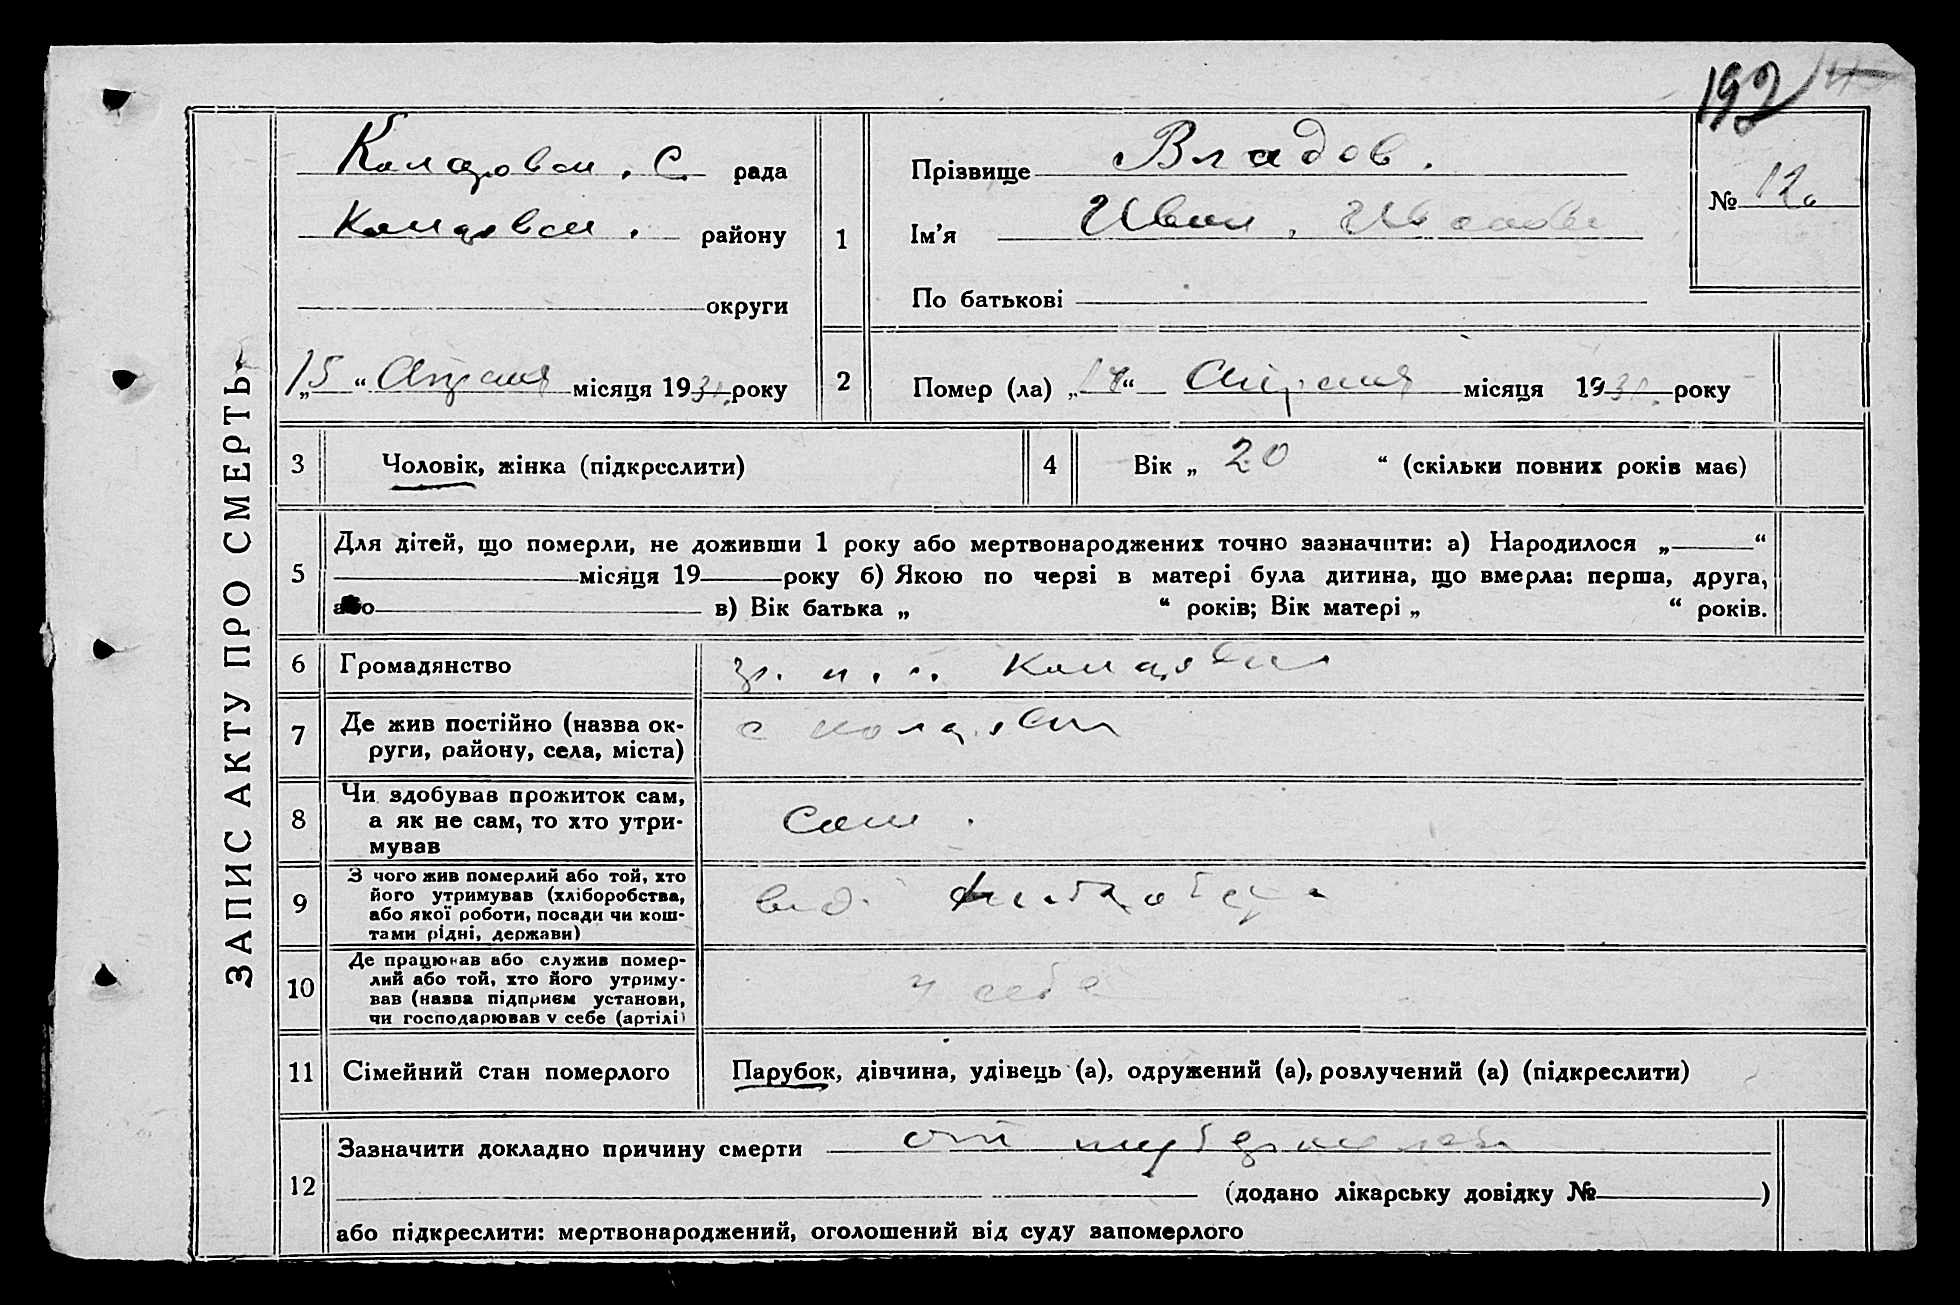 192
ЗАПИС АКТУ ПРО СМЕРТЬ
С. рада
району
округи
„15“ Апреля місяця 1931 року
1
Прізвище Владов.
Ім'я Иван,
По батькові
№ 12
2
Помер (ла) „ “ Апреля місяця 1931. року
3
Чоловік, жінка (підкреслити)
4
Вік „ 20 “ (скільки повних років має)
5
Для дітей, що померли, не доживши 1 року або мертвонароджених точно зазначити: а) Народилося „ “
місяця 19 року б) Якою по черзі в матері була дитина, що вмерла: перша, друга,
або в) Вік батька „ “ років; Вік матері „ “ років.
6
Громадянство
7
Де жив постійно (назва ок-
руги, району, села, міста)
с
8
Чи здобував прожиток сам,
а як не сам, то хто утри-
мував
Сам.
9
З чого жив померлий або той, хто
його утримував (хліборобства,
або якої роботи, посади чи кош-
тами рідні, держави)
10
Де працював або служив помер-
лий або той, хто його утриму-
вав (назва підприєм установи,
чи господарював у себе (артілі)
у себе
11
Сімейний стан померлого
Парубок, дівчина, удівець (а), одружений (а), розлучений (а) (підкреслити)
12
Зазначити докладно причину смерти от
(додано лікарську довідку № )
або підкреслити: мертвонароджений, оголошений від суду запомерлого